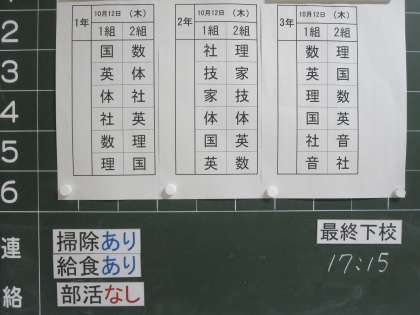 1年 10月12日 (木)
1組 2組
国 数
英 体
体 社
社 英
数 理
理 国
2年 10月12日 (木)
1組 2組
社 理
技 家
家 技
体 体
国 英
英 数
3年 10月12日 (木)
1組 2組
数 理
英 国
理 数
国 英
社 音
音 社
2
3
4
5
6
連絡
掃除あり
給食あり
部活なし
最終下校
17:15